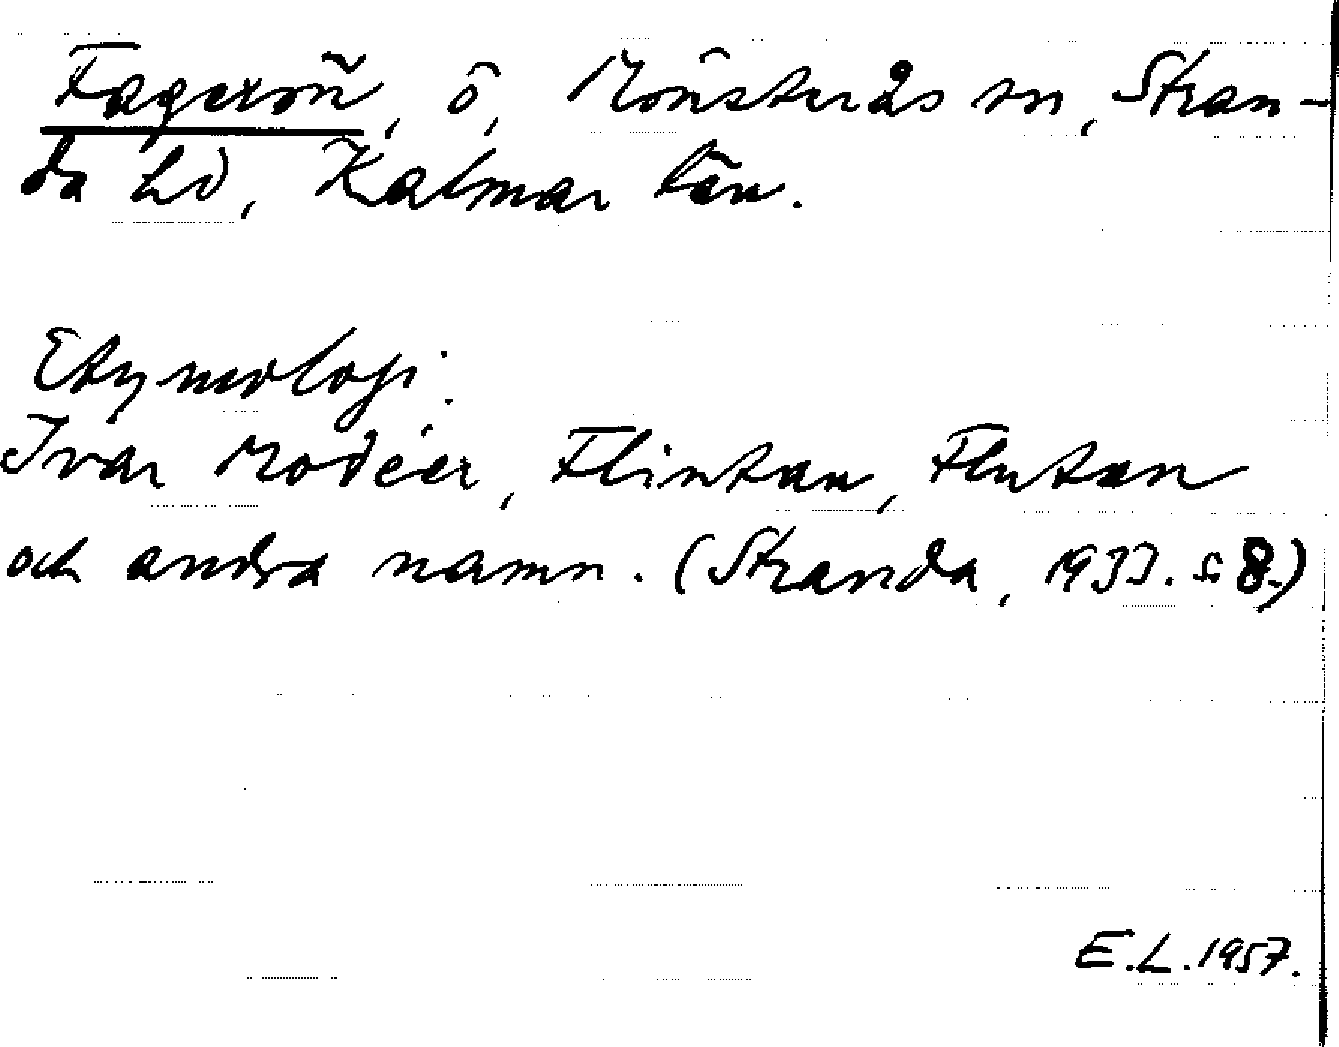 Fagerön, ö, Mönsterås sn, Stran-
da hd, Kalmar län.
Etymologi:
Ivar Modéer, Flintan, Flutan
och andra namn. (Stranda, 1933. s. 8.)
E.L. 1957.